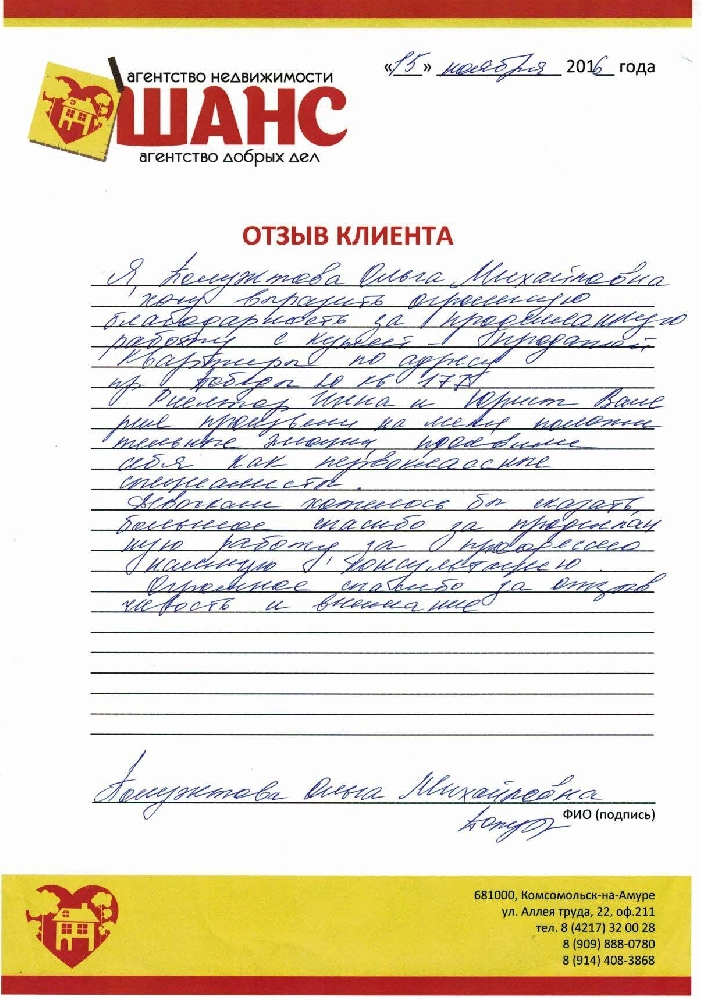 «15» ноября 2016 года
агентство недвижимости
ШАНС
агентство добрых дел
ОТЗЫВ КЛИЕНТА
Я, Ольга Михайловна
хочу выразить огромную
благодарность за проделанную
работу с куплей - продажей
квартиры по адресу
пр. Победы 20 кв 177
Риелтор Инна и Юрист Вале
рия произвели на меня положи
тельные эмоции, проявили
себя как первоклассные
специалисты.
Девочкам хотелось бы сказать,
большое спасибо за проделан
ную работу за професссио
нальную консультацию.
Огромное спасибо за отзыв
чивость и внимание
Ольга Михайловна
ФИО (подпись)
681000, Комсомольск-на-Амуре
ул. Аллея труда, 22, оф.211
тел. 8 (4217) 32 00 28
8 (909) 888-0780
8 (914) 408-3868